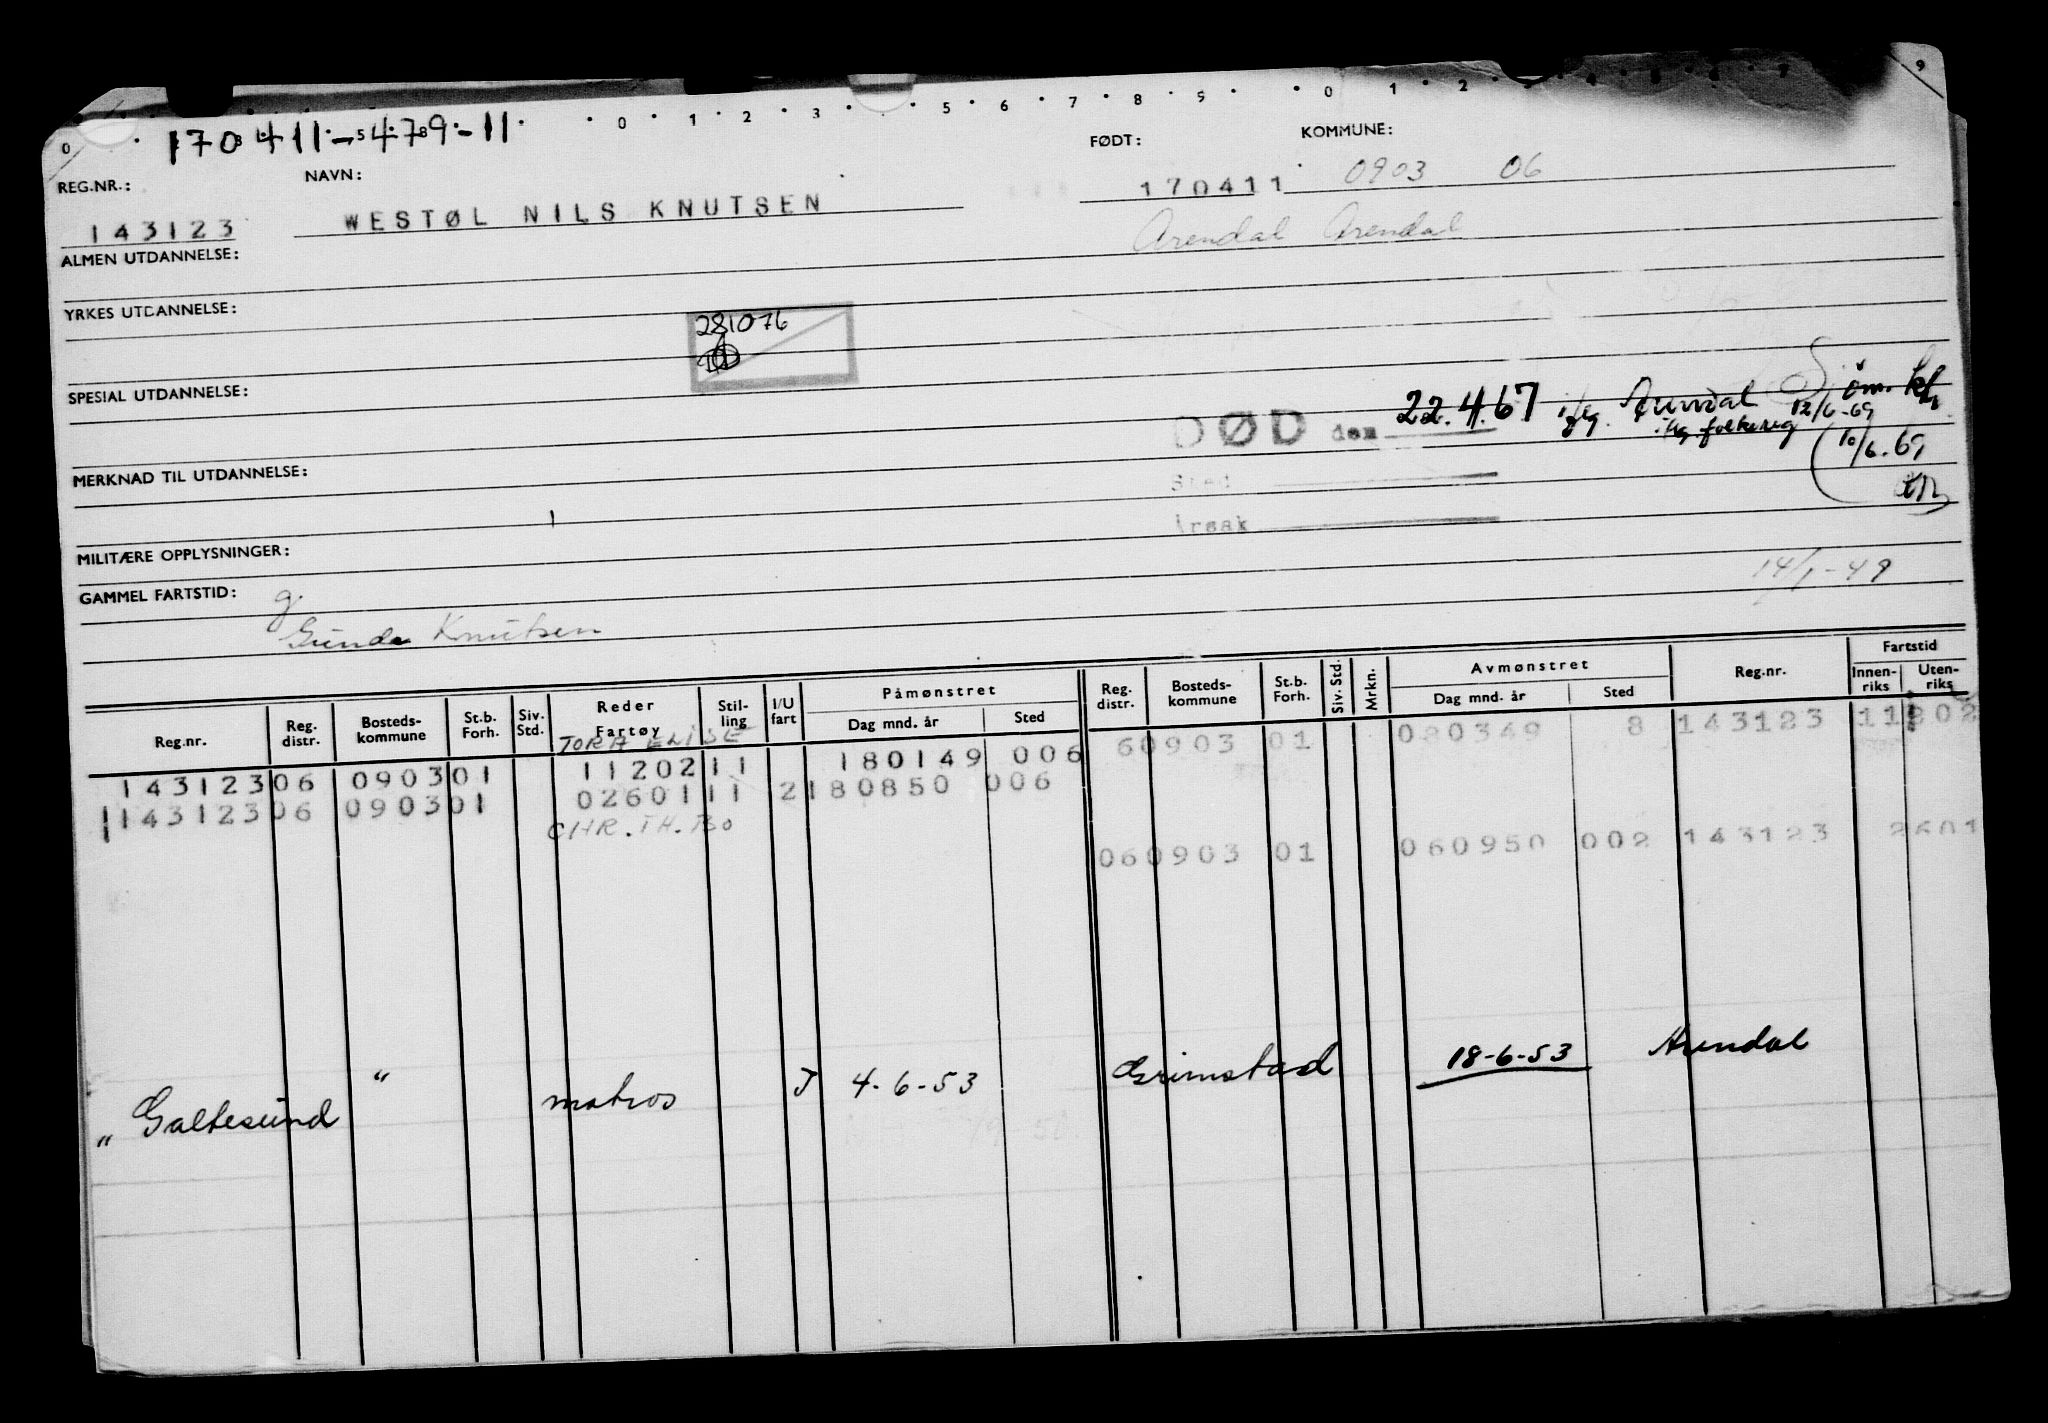 0 1 2 3 5 6 7 8 9 0 1 2 9
170411-479-11
REG.NR.: NAVN: FØDT: KOMMUNE:
143123 WESTØL NILS KNUTSEN 170411 0903 06
Arendal Arendal
ALMEN UTDANNELSE:
YRKES UTDANNELSE:
281076
SPESIAL UTDANNELSE:
DØD den 22.4.67 Arendal
12/6-69
folkereg
10/6.69
MERKNAD TIL UTDANNELSE:
Sted
Årsak
MILITÆRE OPPLYSNINGER:
GAMMEL FARTSTID: g
14/1-49
Gunda Knutsen
Reg.nr. Reg. distr. Bosteds- kommune St.b. Forh. Siv. Std. Reder Fartøy Stil- ling I/U fart Påmønstret Dag mnd. år Sted Reg. distr. Bosteds- kommune St.b. Forh. Siv. Std. Mrkn. Avmønstret Dag mnd. år Sted Reg.nr. Fartstid Innen- riks Uten- riks
TORA ELISE
143123 06 0903 01 11202 11 180149 006 6 0903 01 080349 8 143123 11202
143123 06 0903 01 02601 11 2 180850 006
CHR. TH. BO
06 0903 01 060950 002 143123 2601
" Galtesund " matros J 4-6-53 Grimstad 18-6-53 Arendal